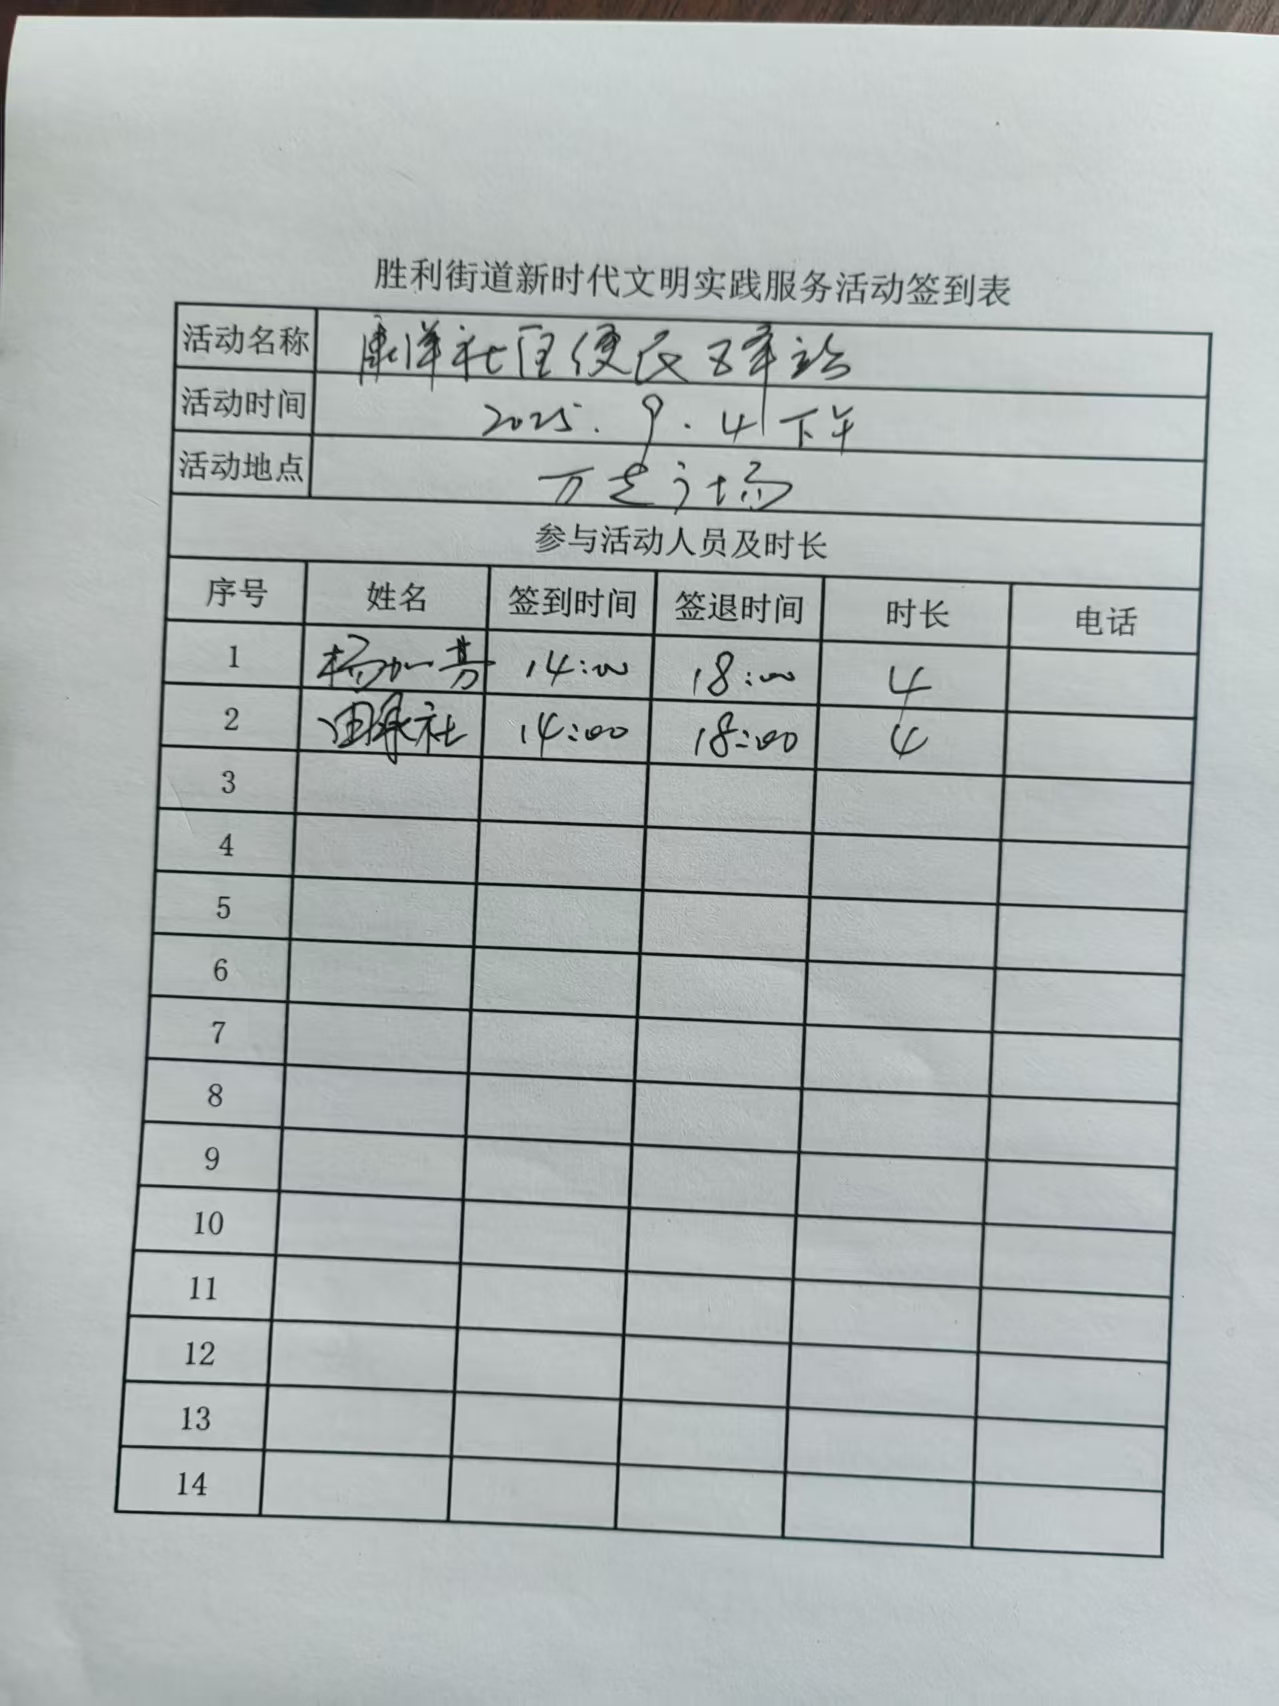 胜利街道新时代文明实践服务活动签到表
活动名称 康洋社区便民驿站
活动时间 2025.9.4下午
活动地点 万达广场
参与活动人员及时长
序号 姓名 签到时间 签退时间 时长 电话
1 杨加芳 14:00 18:00 4
2 14:00 18:00 4
3
4
5
6
7
8
9
10
11
12
13
14